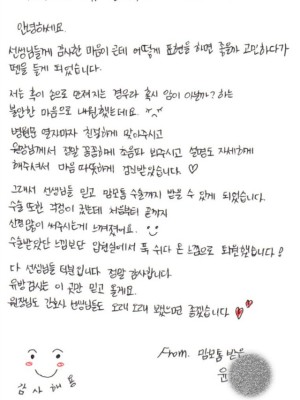 안녕하세요.
선생님들께 감사한 마음이 큰데 어떻게 표현을 하면 좋을까 고민하다가
펜을 들게 되었습니다.
저는 혹이 손으로 만져지는 경우라 혹시 암이 아닐까? 하는
불안한 마음으로 내원했는데요.
병원문 열자마자 친절하게 맞아주시고
원장님께서 정말 꼼꼼하게 초음파 봐주시고 설명도 자세하게
해주셔서 마음 따뜻하게 검진받았습니다. ♡
그래서 선생님들 믿고 맘모톰 수술까지 받을 수 있게 되었습니다.
수술 또한 걱정이 컸는데 처음부터 끝까지
신경많이 써주시는게 느껴졌어요.
수술받았단 느낌보단 입원실에서 푹 쉬다 온 느낌으로 퇴원했습니다!
다 선생님들 덕분입니다 정말 감사합니다.
유방검사는 이 곳만 믿고 올게요.
원장님도 간호사 선생님들도 오래 오래 뵀으면 좋겠습니다
감사해용
From. 맘모톰 받은
윤